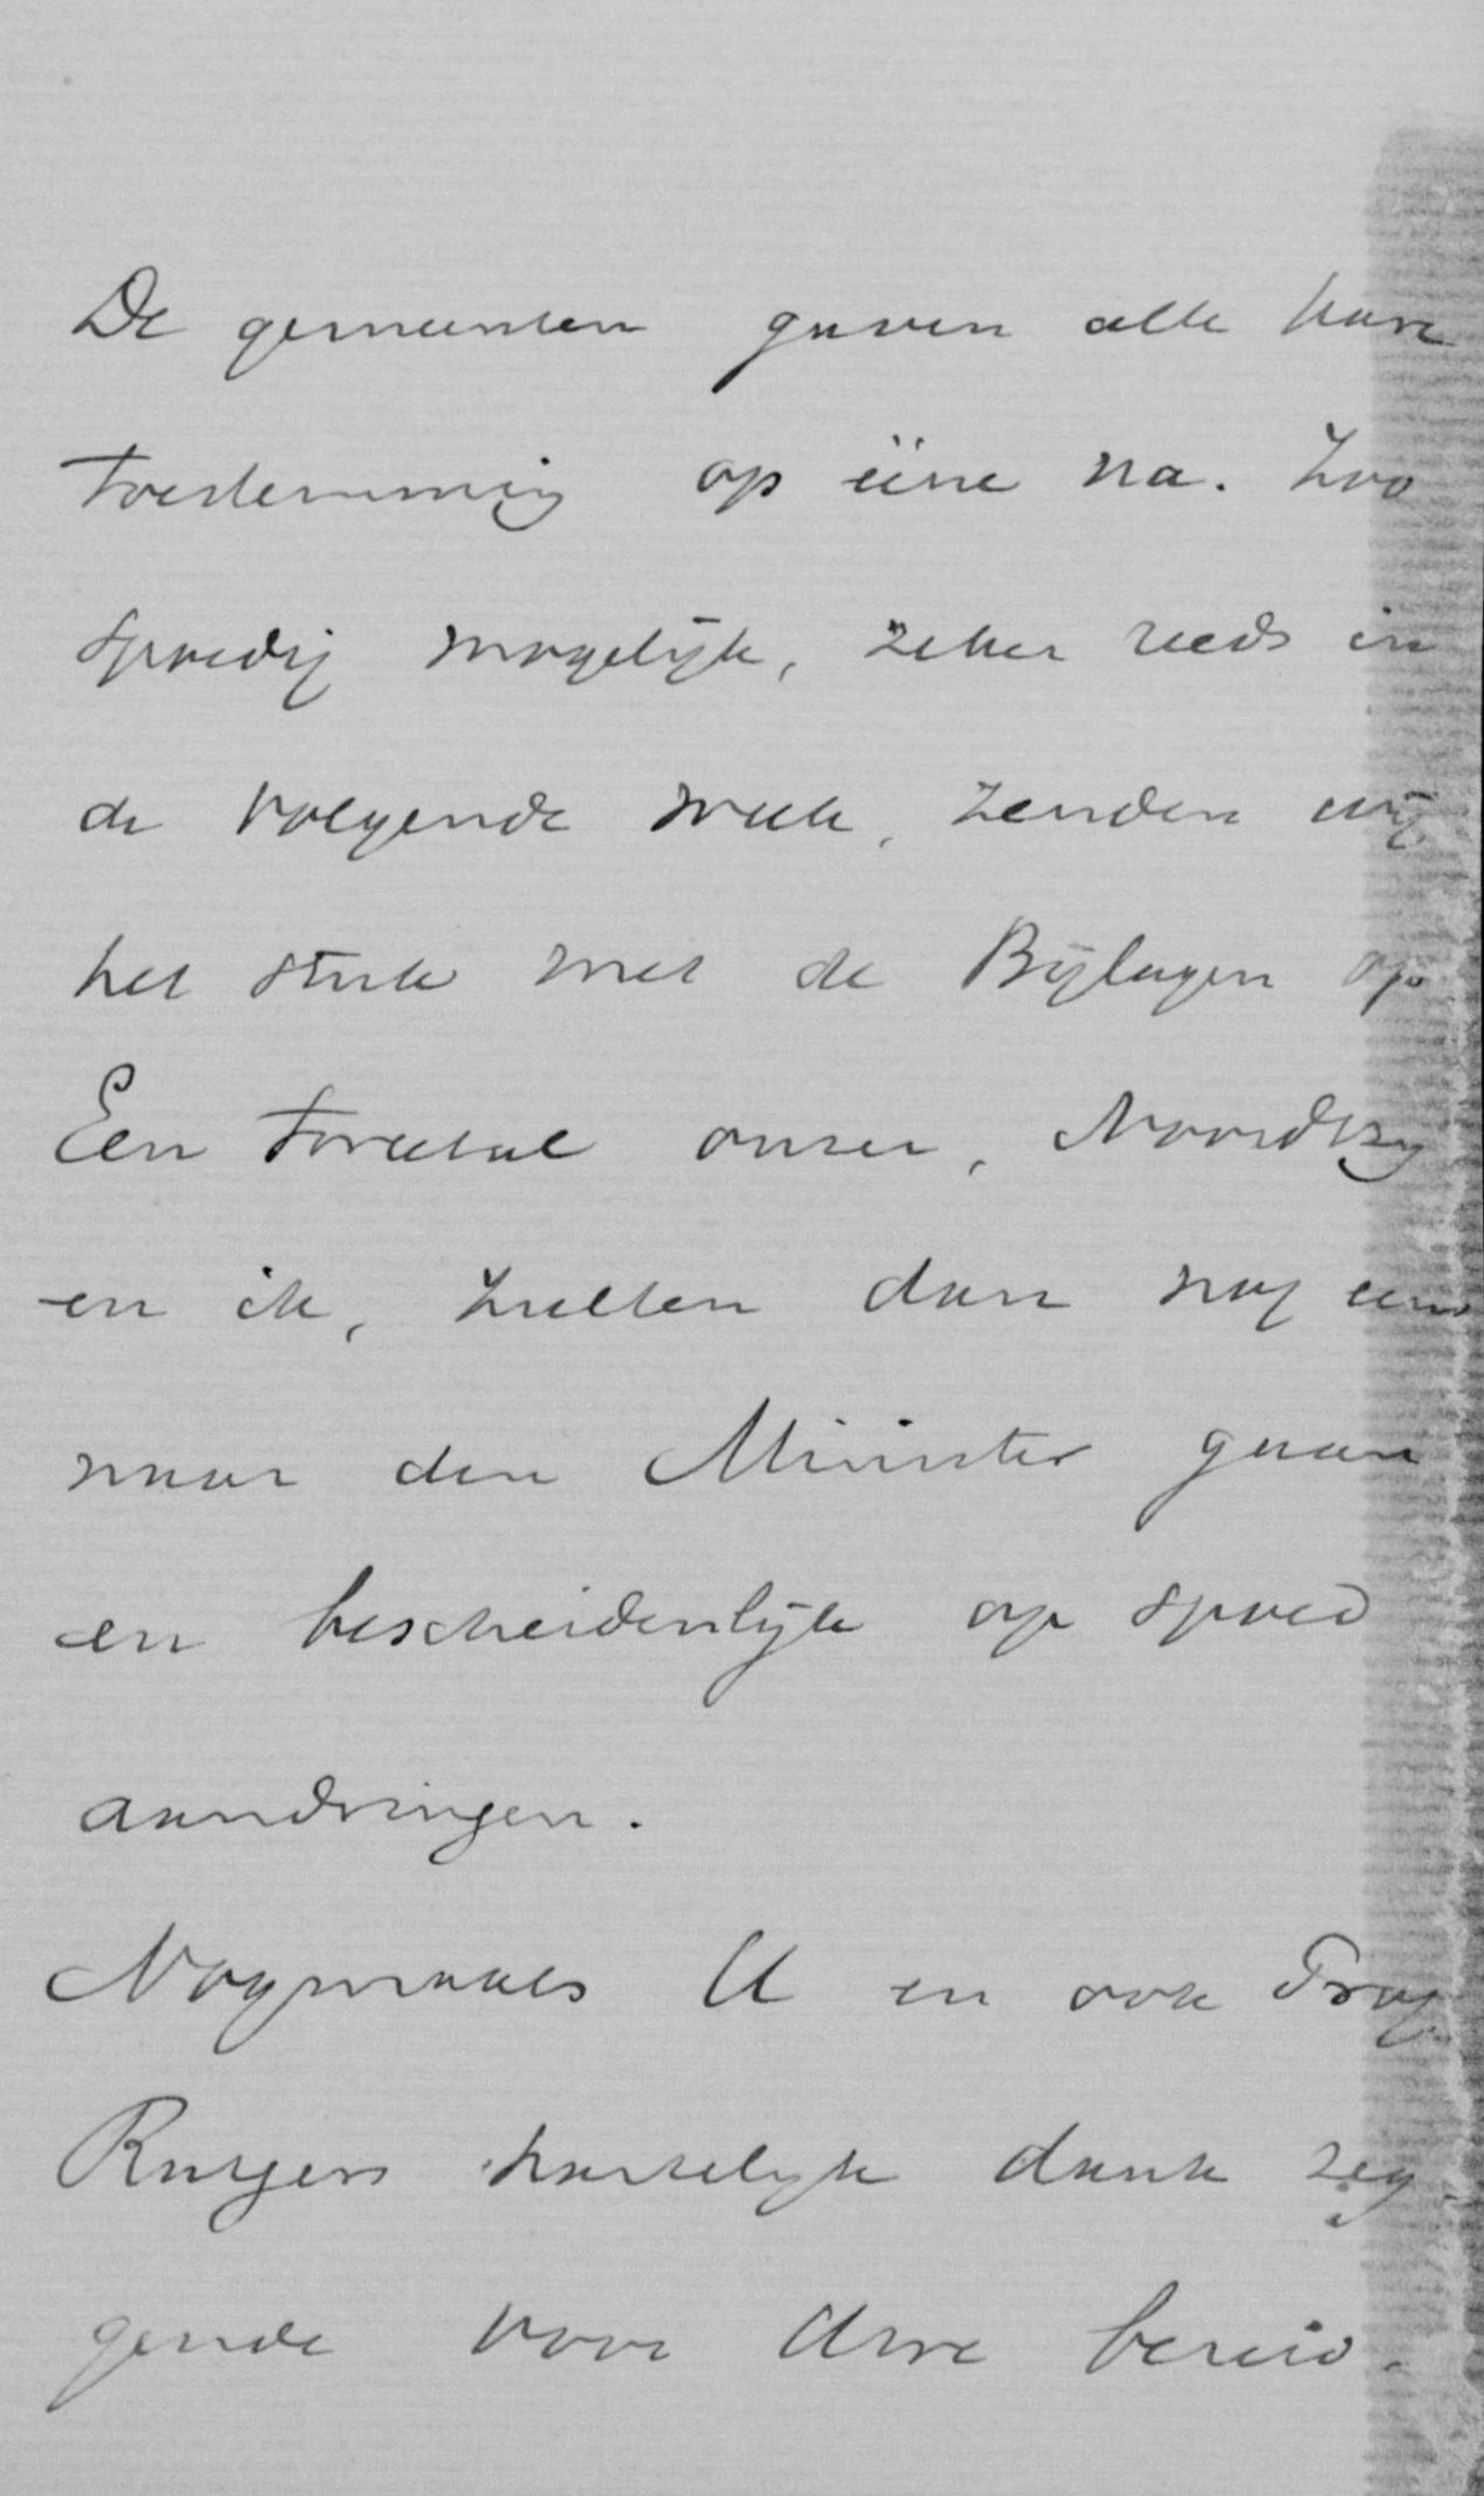 De gemeenten gaven alle hare
toestemming op ééne na. Zoo
spoedig mogelijk, zeker reeds in
de volgende week, zenden wij
het stuk met de Bijlagen op
Een tweetal onzer,
en ik, zullen dan nog eens
naar den Minister gaan
en bescheidenlijk op spoed
aandringen.
Nogmaals U en ook Prof.
Rutgers hartelijk dank zeg-
gende voor Uwe bereid-